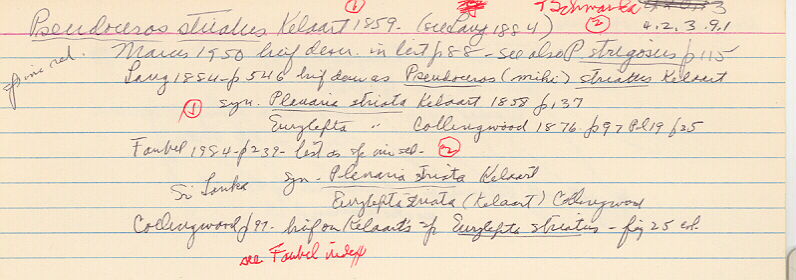 ① T Schmarda
Pseudoceros striatus Kelaart 1859 - (see Lang 1884) ② 4.2.3.9.1
Marcus 1950 brief descr. in list p88 - see also P strigosus p115
sp inc sed.
Lang 1884 - p 546 brief descr as Pseudoceros (mihi) striatus Kelaart
① syn. Planaria striata Kelaart 1858 p137
Eurylepta " Collingwood 1876 p97 Pl19 f25
Faubel 1984 - p239 - list as sp inc sed - ②
Sri Lanka syn - Planaria striata Kelaart
Eurylepta striata (Kelaart) Collingwood
Collingwood p97 - brief on Kelaart's sp Eurylepta striatus - fig 25 col.
see Faubel